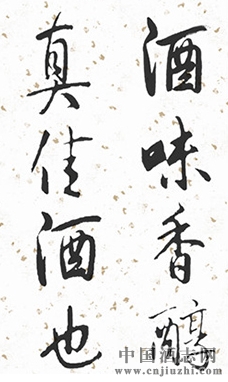 酒味香醇
真佳酒也
中国酒志网
www.cnjiuzhi.com